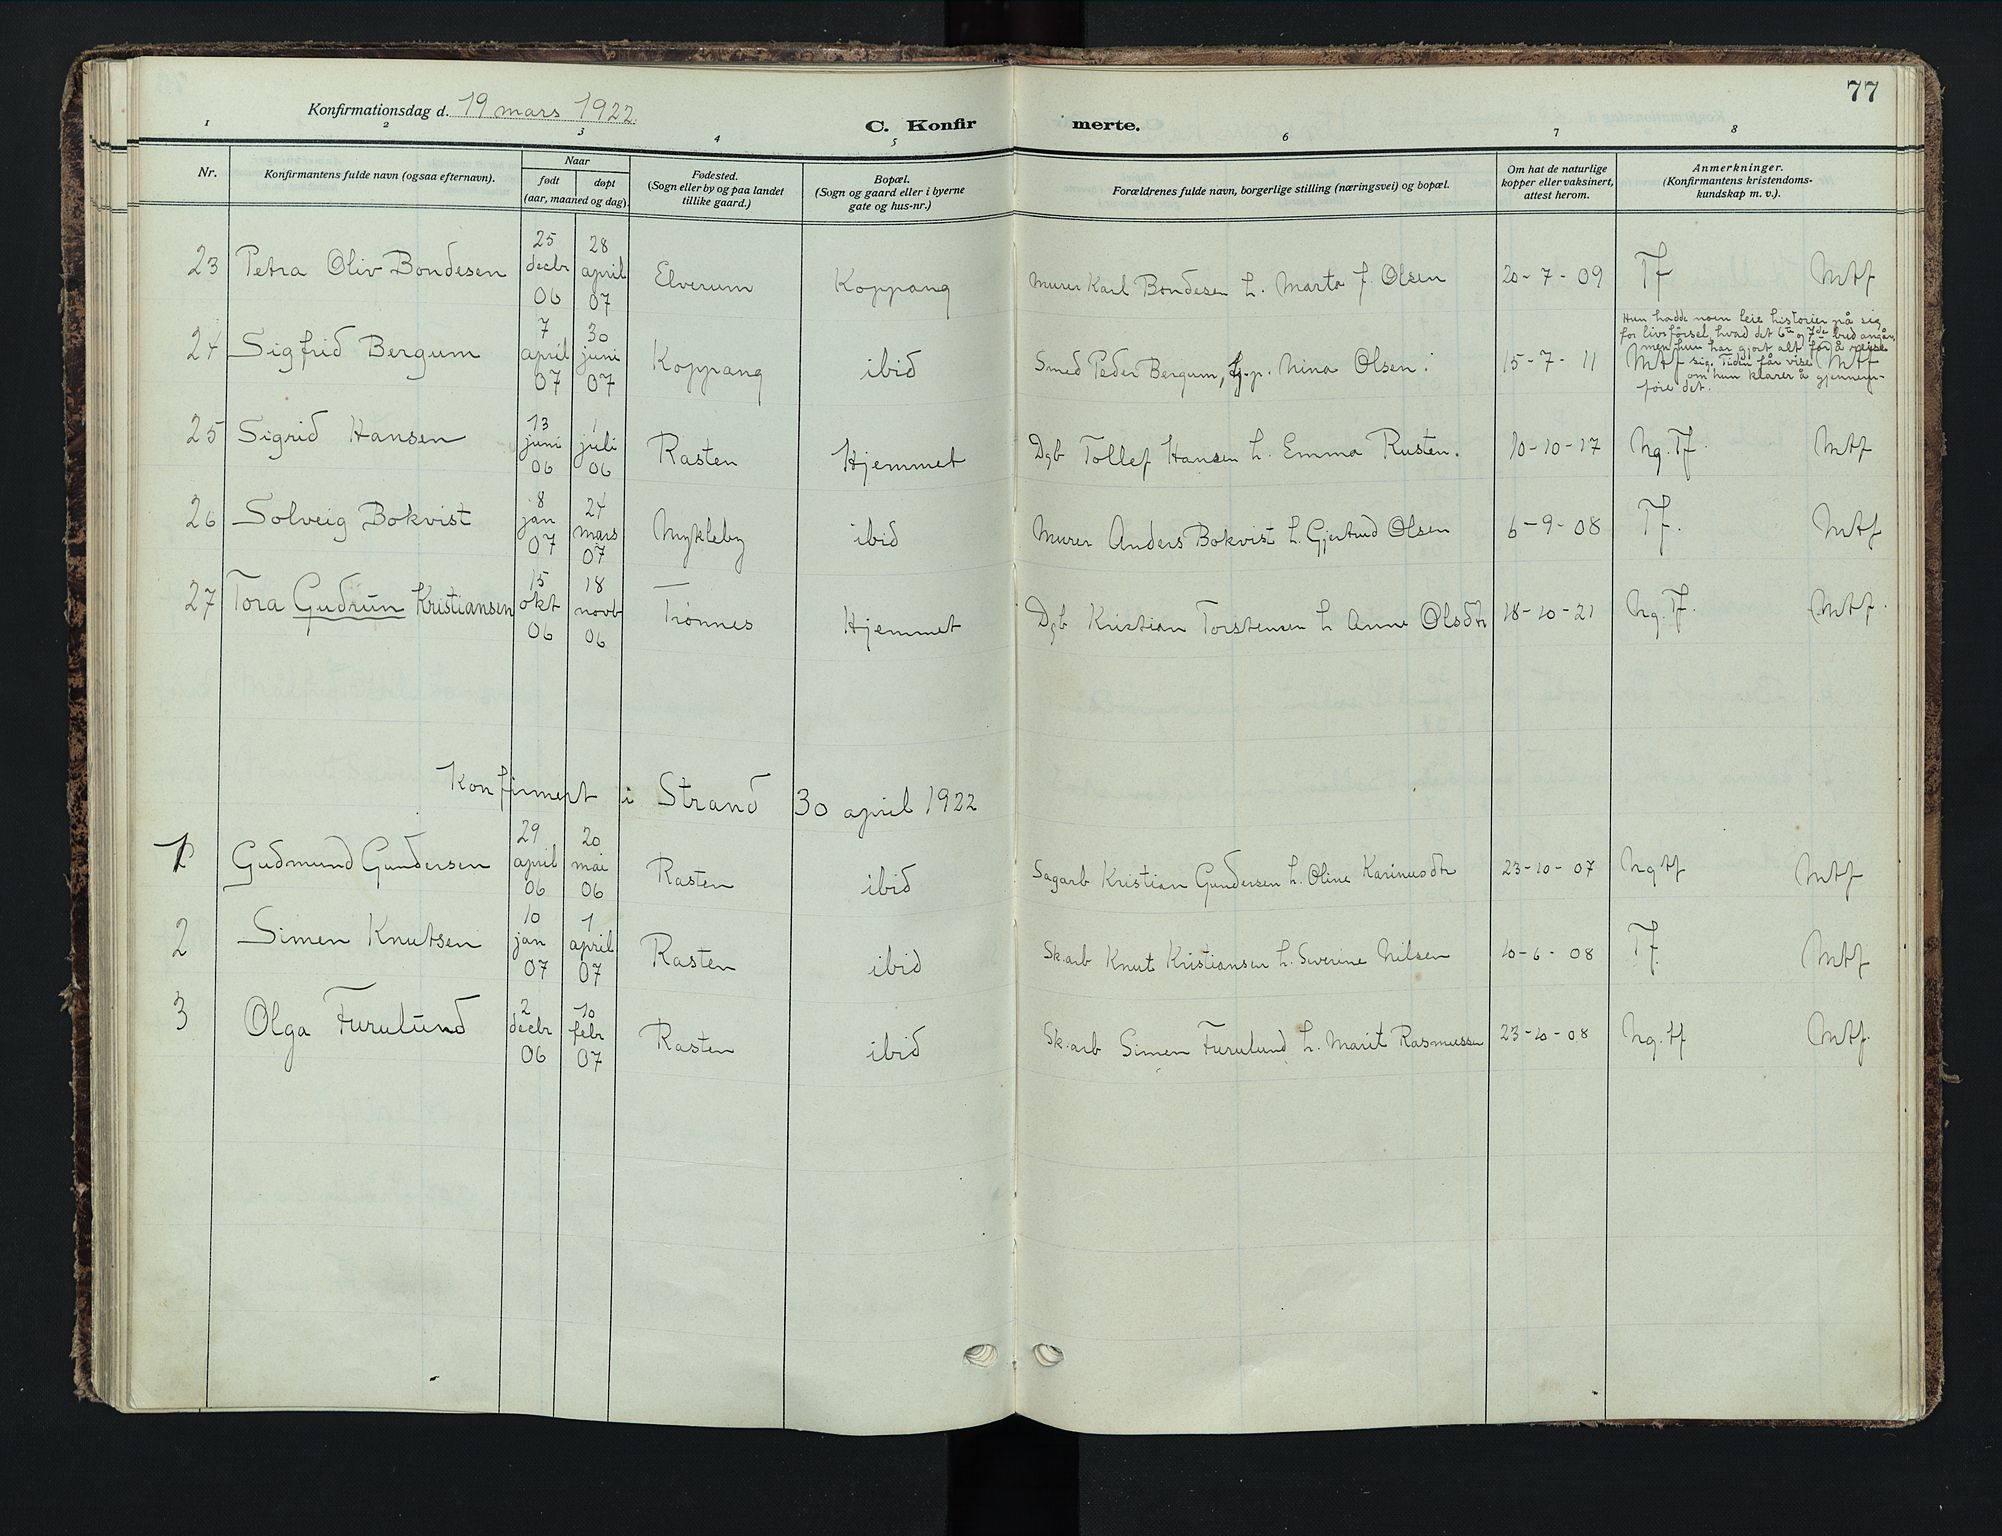 77
Konfirmationsdag d. 19 mars 1922.
C. Konfirmerte.
1 2 3 4 5 6 7 8
Nr. Konfirmantens fulde navn (ogsaa efternavn). Naar født døpt (aar, maaned og dag). Fødested. (Sogn eller by og paa landet tillike gaard.) Bopæl. (Sogn og gaard eller i byerne gate og hus-nr.) Forældrenes fulde navn, borgerlige stilling (næringsvei) og bopæl. Om hat de naturlige kopper eller vaksinert, attest herom. Anmerkninger. (Konfirmantens kristendoms-kundskap m. v.).
23 Petra Oliv Bondesen 25 decbr 06 28 april 07 Elverum Koppang Murer Karl Bondesen h. Marta f. Olsen 20-7-09 Tf Mtf
24 Sigfrid Bergum 7 april 07 30 juni 07 Koppang ibid Smed Peder Bergum, hj.p. Nina Olsen. 15-7-11 Mtf Mtf
Hun hadde noen leie historier på sig
for livsførsel hvad det 6te og 7de bud angår,
men hun har gjort alt for å reise
sig. Tiden får vise
om hun klarer å gjennem-
føre det.
25 Sigrid Hansen 13 juni 06 1 juli 06 Rasten Hjemmet Dgb Tollef Hansen h. Emma Rusten. 10-10-17 Ng. Tf. Mtf
26 Solveig Bokvist 8 jan 07 24 mars 07 Mykleby ibid Murer Anders Bokvist h. Gjertrud Olsen 6-9-08 Tf. Mtf
27 Tora Gudrun Kristiansen 15 okt 06 18 novb 06 Trønnes Hjemmet Dgb Kristian Torstensen h Anne Olsdtr 18-10-21 Ng. Tf. Mtf.
Konfirmert i Strand 30 april 1922
1 Gudmund Gundersen 29 april 06 20 mai 06 Rasten ibid Sagarb Kristian Gundersen h. Oline Karinusdtr 23-10-07 Ng tf Mtf
2 Simen Knutsen 10 jan 07 1 april 07 Rasten ibid Sk.arb Knut Kristiansen h. Severine Nilsen 10-6-08 Tf. Mtf
3 Olga Furulund 2 decbr 06 10 febr 07 Rasten ibid Sk.arb Simen Furulund h. Marit Rasmussen 23-10-08 Ng. tf Mtf.